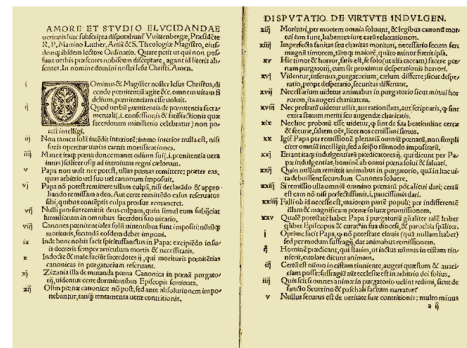 AMORE ET STVDIO ELVCIDANDAE
ueritatis hæc subscripta disputabuntur Vuittenbergæ, Præsidēte
R. P. Martino Luther, Artiū & S. Theologiæ Magistro, eius-
dem ibidem lectore Ordinario. Quare petit ut qui non pos-
sunt uerbis præsentes nobiscum disceptare, agant id literis ab-
sentes. In nomine domini nostri Iesu Christi. Amen.
i Dominus & Magister noster Iesus Christus, di-
cendo pœnitentiā agite &c. omnem uitam fi-
delium, pœnitentiam esse uoluit.
ij Quod uerbū pœnitentia de pœnitentia sacra-
mentali, i. confessionis & satisfactionis quæ
sacerdotum ministerio celebratur, non po-
test intelligi.
iij Non tamen solā intēdit interiorē; immo interior nulla est, nisi
foris operetur uarias carnis mortificationes.
iiij Manet itaq; pœna donec manet odium sui, i. pœnitentia uera
intus, scilicet usq; ad introitum regni cælorum.
v Papa non uult nec potest, ullas pœnas remittere; præter eas,
quas arbitrio uel suo uel canonum imposuit.
vi Papa nō potest remittere ullam culpā, nisi declarādo & appro-
bando remissam a deo, Aut certe remittēdo casus reseruatos
sibi, quibus contēptis culpa prorsus remaneret.
vij Nulli prorsus remittit deus culpam, quin simul eum subijciat
humiliatum in omnibus sacerdoti suo uicario.
viij Canones pœnitentiales solū uiuentibus sunt impositi; nihilq;
morituris, secundū eosdem debet imponi.
ix Inde bene nobis facit spiritussanctus in Papa; excipiēdo in su-
is decretis semper articulum mortis & necessitatis.
x Indocte & male faciūt sacerdotes ij, qui morituris pœnitētias
canonicas in purgatorium reseruant.
xi Zizania illa de mutanda pœna Canonica in pœnā purgato-
rij, uidentur certe dormientibus Episcopis seminata.
xij Olim pœnæ canonicæ nō post, sed ante absolutionem impo-
nebantur, tanq̄ tentamenta ueræ contritionis.
DISPVTATIO. DE VIRTVTE INDVLGEN.
xiij Morituri, per mortem omnia soluunt, & legibus canonū mor-
tui iam sunt, habentes iure earū relaxationem.
xiiij Imperfecta sanitas seu charitas morituri, necessario secum fert
magnū timorem, tātoq; maiorē, quāto minor fuerit ipsa.
xv Hic timor & horror, satis est, se solo (ut alia taceam) facere pœ-
nam purgatorij, cum sit proximus desperationis horrori.
xvj Videntur, infernus, purgatorium, cælum differre; sicut despe-
ratio, prope desperatio, securitas differunt.
xvij Necessarium uidetur animabus in purgatorio sicut minui hor-
rorem, ita augeri charitatem.
xviij Nec probatū uidetur ullis, aut rationibus, aut scripturis, q̄ sint
extra statum meriti seu augendæ charitatis.
xix Nec hoc probatū esse uidetur, q̄ sint de sua beatitudine certæ
& securæ, saltem oēs, licet nos certissimi simus.
xx Igit Papa per remissionē plenariā omniū pœnarū, non simpli-
citer omniū intelligit, sed a seipso tātummodo impositarū.
xxj Errant itaq; indulgentiarū prædicatores ij, qui dicunt per Pa-
pæ indulgentias, hominē ab omni pœna solui & saluari.
xxij Quin nullam remittit animabus in purgatorio, quā in hac ui-
ta debuissent secundum Canones soluere.
xxiij Si remissio ulla omniū omnino pœnarū pōt alicui dari; certū
est eam nō nisi perfectissimis, i. paucissimis dari.
xxiiij Falli ob id necesse est, maiorem partē populi; per indifferentē
illam & magnificam pœnæ solutæ promissionem.
xxv Qualē potestatē habet Papa in purgatoriū gñaliter; talē habet
quilibet Episcopus & Curatus in sua diocesi, & parochia spāliter.
j Optime facit Papa, q̄ nō potestate clauis (quā nullam habet)
sed per modum suffragij, dat animabus remissionem.
ij Hominē prædicant, qui statim, ut iactus nūmus in cistam tin-
nierit, euolare dicunt animam.
iij Certū est nūmo in cistam tinniente, augeri quæstum & auari-
ciam posse; suffragiū aūt ecclesiæ est in arbitrio dei solius.
iiij Quis scit si omnes animæ in purgatorio uelint redimi, sicut de
sancto Seuerino & paschali factum narratur?
v Nullus securus est de ueritate suæ contritionis; multo minus
a ij